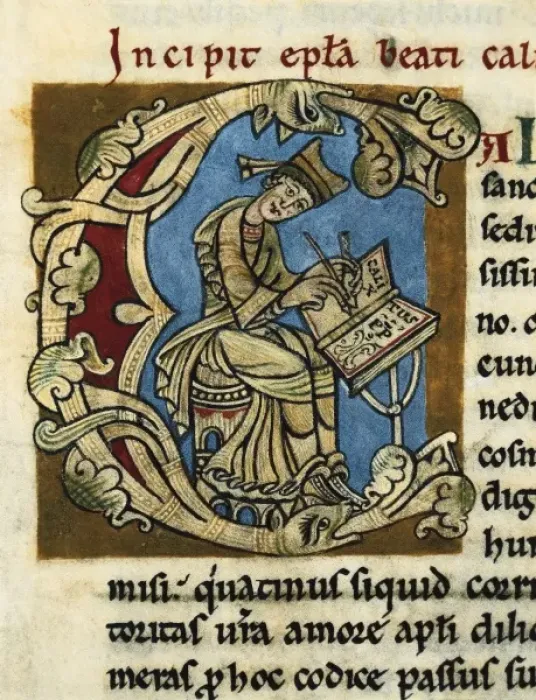 Incipit epła beati cali
CALI
X
TUS
AL
ſanc
ſedi
ſiſſi
no. c
cun
nedi
coſm
dig
hum
miſi: quatinuſ ſiquid corri
toritaſ ur̄a amore apłi dili
meraſ ꝑ hoc codice paſſuſ ſu